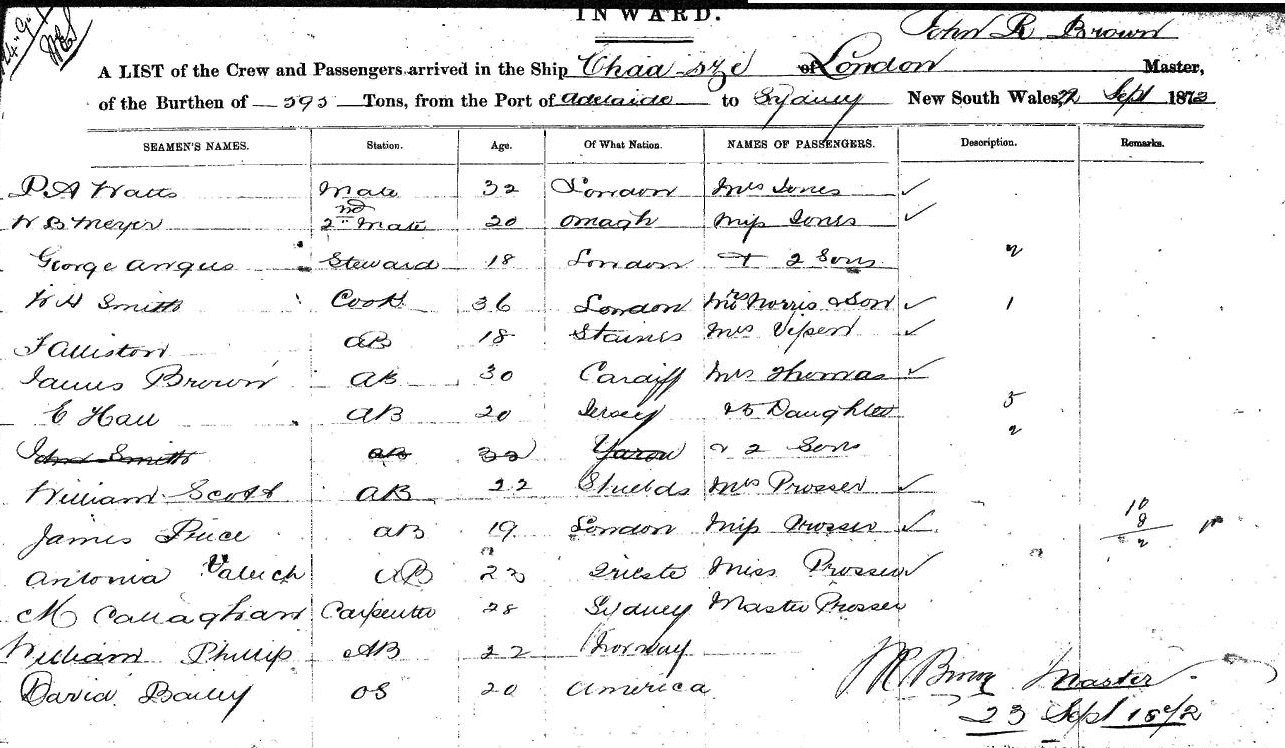 INWARD.
John R Brown
A LIST of the Crew and Passengers arrived in the Ship Chaa-sze of London Master,
of the Burthen of 593 Tons, from the Port of Adelaide to Sydney New South Wales, 22 Sept 1872
SEAMEN'S NAMES. Station. Age. Of What Nation. NAMES OF PASSENGERS. Description. Remarks.
P A Watts Mate 32 London Mrs Jones ✓
W B Meyer 2nd Mate 20 Omagh Miss Jones ✓
George Angus Steward 18 London + 2 Sons 2
W H Smith Cook 36 London Mrs Norris & Son ✓ 1
F Alliston AB 18 Staines Mrs Vipen ✓
James Brown AB 30 Cardiff Mrs Thomas ✓
E Hall AB 20 Jersey & 5 Daughter 5
John Smith AB 32 Yarou & 2 Sons 2
William Scott AB 22 Shields Mrs Prosser ✓
James Price AB 19 London Miss Prosser ✓ 10
8
2
Antonia Valich AB 23 Trieste Miss Prosser ✓
M Callaghan Carpenter 28 Sydney Master Prosser
William Phillip AB 22 Norway
David Bailey OS 20 America
J R Brown Master
23 Sept 1872